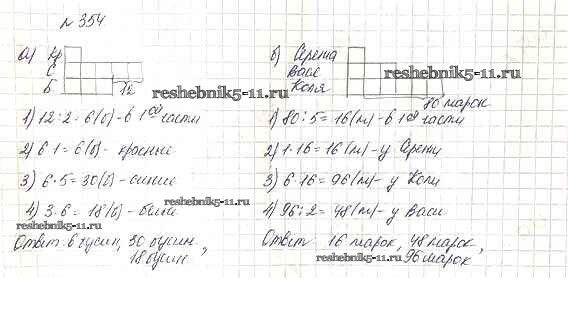 № 354
а) Кр
С
Б
12
1) 12:2=6(б)-в 1ой части
2) 6·1=6(б)- красные
3) 6·5=30(б)-синие
4) 3·6=18(б)-белые
Ответ: 6 бусин, 30 бусин,
18 бусин
б) Сережа
Вася
Коля
80 марок
1) 80:5=16(м)-в 1ой части
2) 1·16=16(м)-у Сережи
3) 6·16=96(м)-у Коли
4) 96:2=48(м)-у Васи
Ответ 16 марок, 48 марок,
96 марок
reshebnik5-11.ru
reshebnik5-11.ru
reshebnik5-11.ru
reshebnik5-11.ru